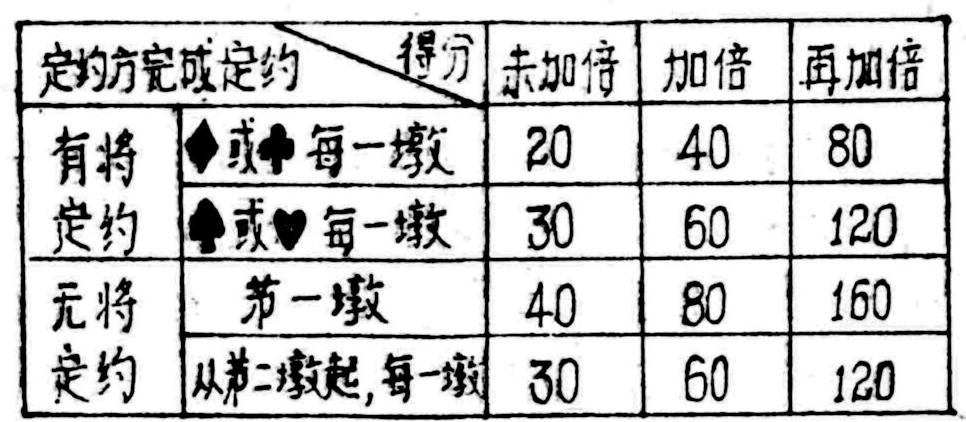 定约方完成定约 得分 未加倍 加倍 再加倍
有将定约 ♦或♣每一墩 20 40 80
♠或♥每一墩 30 60 120
无将定约 第一墩 40 80 160
从第二墩起,每一墩 30 60 120